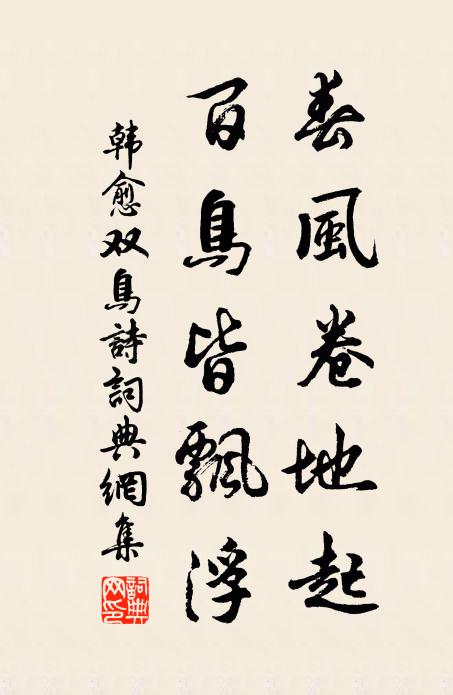 春風卷地起
百鳥皆飄浮
韩愈双鳥詩詞典網集
詞典網印